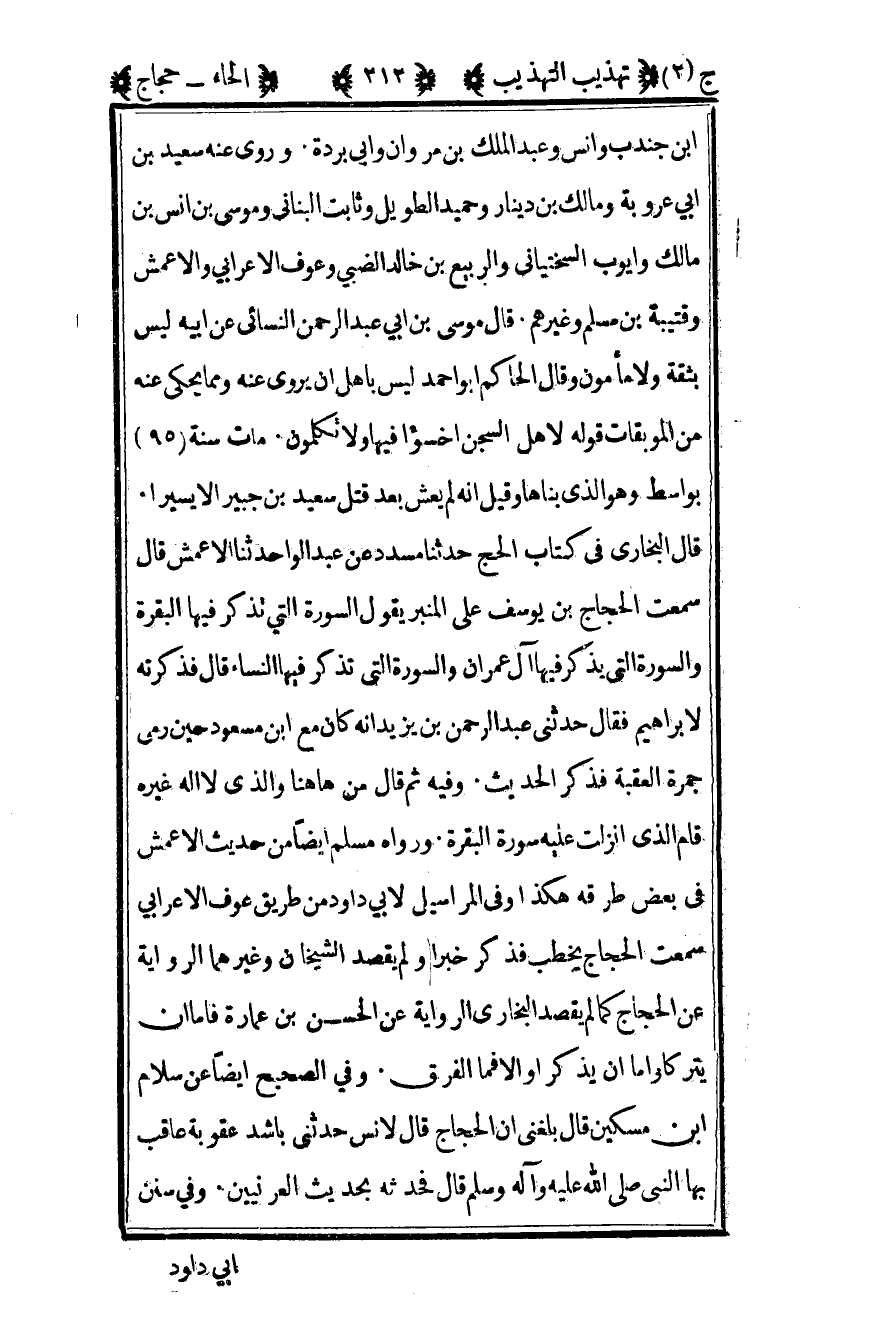 ج (٢) ﴿ تهذيب التهذيب ﴾ ﴿ ٢١٢ ﴾ ﴿ الحاء - حجاج ﴾
ابن جندب وانس وعبدالملك بن مروان وابي بردة · وروى عنه سعيد بن
ابي عروبة ومالك بن دينار وحميد الطويل وثابت البنانى وموسى بن انس بن
مالك وايوب السختيانى والربيع بن خالد الضبي وعوف الاعرابي والاعمش
وقتيبة بن مسلم وغيرهم · قال موسى بن ابي عبدالرحمن النسائى عن ابيه ليس
بثقة ولا مأمون وقال الحاكم ابو احمد ليس باهل ان يروى عنه ومما يحكى عنه
من الموبقات قوله لاهل السجن اخسؤا فيها ولا تكلمون · مات سنة (٩٥)
بواسط وهو الذى بناها وقيل انه لم يعش بعد قتل سعيد بن جبير الا يسيرا ·
قال البخارى فى كتاب الحج حدثنا مسدد عن عبدالواحد ثنا الاعمش قال
سمعت الحجاج بن يوسف على المنبر يقول السورة التي تذكر فيها البقرة
والسورة التي يذكر فيها آل عمران والسورة التى تذكر فيها النساء قال فذكرته
لابراهيم فقال حدثنى عبدالرحمن بن يزيد انه كان مع ابن مسعود حين رمى
جمرة العقبة فذكر الحديث · وفيه ثم قال من هاهنا والذى لا اله غيره
قام الذى انزلت عليه سورة البقرة · ورواه مسلم ايضاً من حديث الاعمش
فى بعض طرقه هكذا وفى المراسيل لابي داود من طريق عوف الاعرابي
سمعت الحجاج يخطب فذكر خبرا ولم يقصد الشيخان وغيرهما الرواية
عن الحجاج كما لم يقصد البخارى الرواية عن الحسن بن عمارة فاما ان
يتركا واما ان يذكرا والا فما الفرق · وفي الصحيح ايضاً عن سلام
ابن مسكين قال بلغنى ان الحجاج قال لانس حدثنى باشد عقوبة عاقب
بها النبى صلى الله عليه وآله وسلم قال فحدثه بحديث العرنيين · وفي سنن
ابي داود